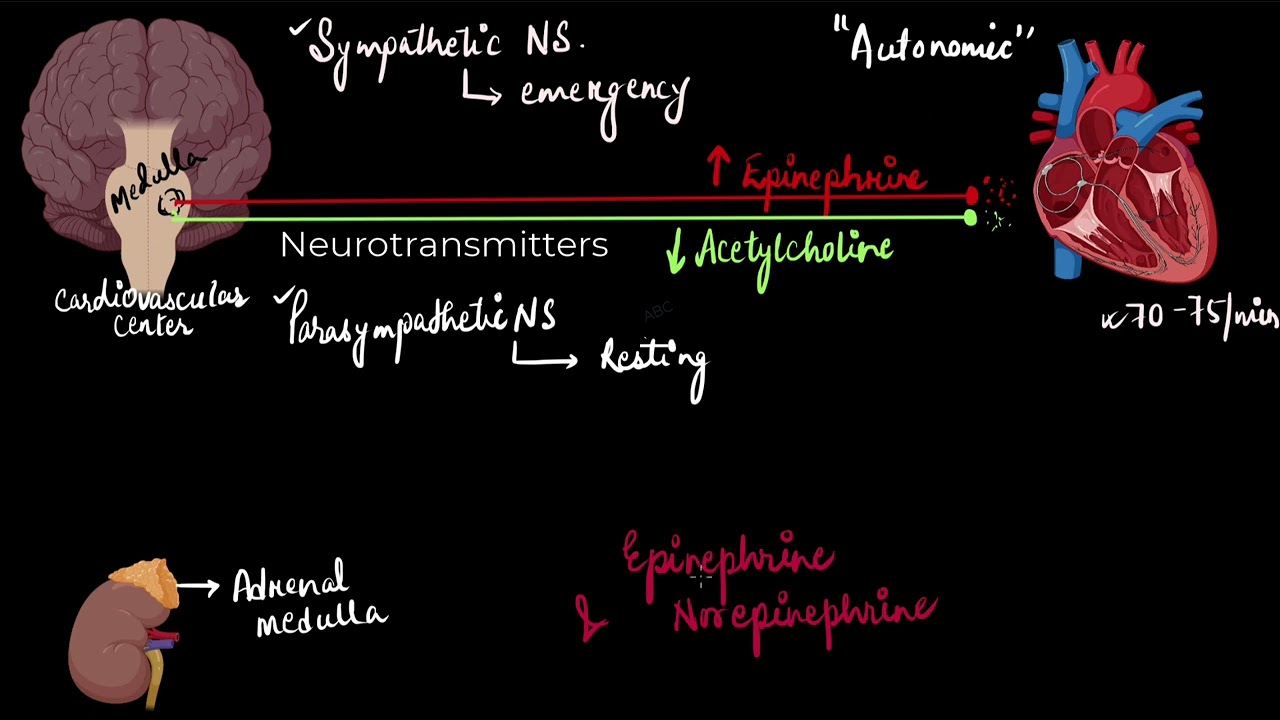 Sympathetic NS.
"Autonomic"
emergency
Medulla
↑ Epinephrine
Neurotransmitters
↓ Acetylcholine
Cardiovascular
Center
Parasympathetic NS
ABC
70-75/min
Resting
Adrenal
medulla
Epinephrine
& Norepinephrine